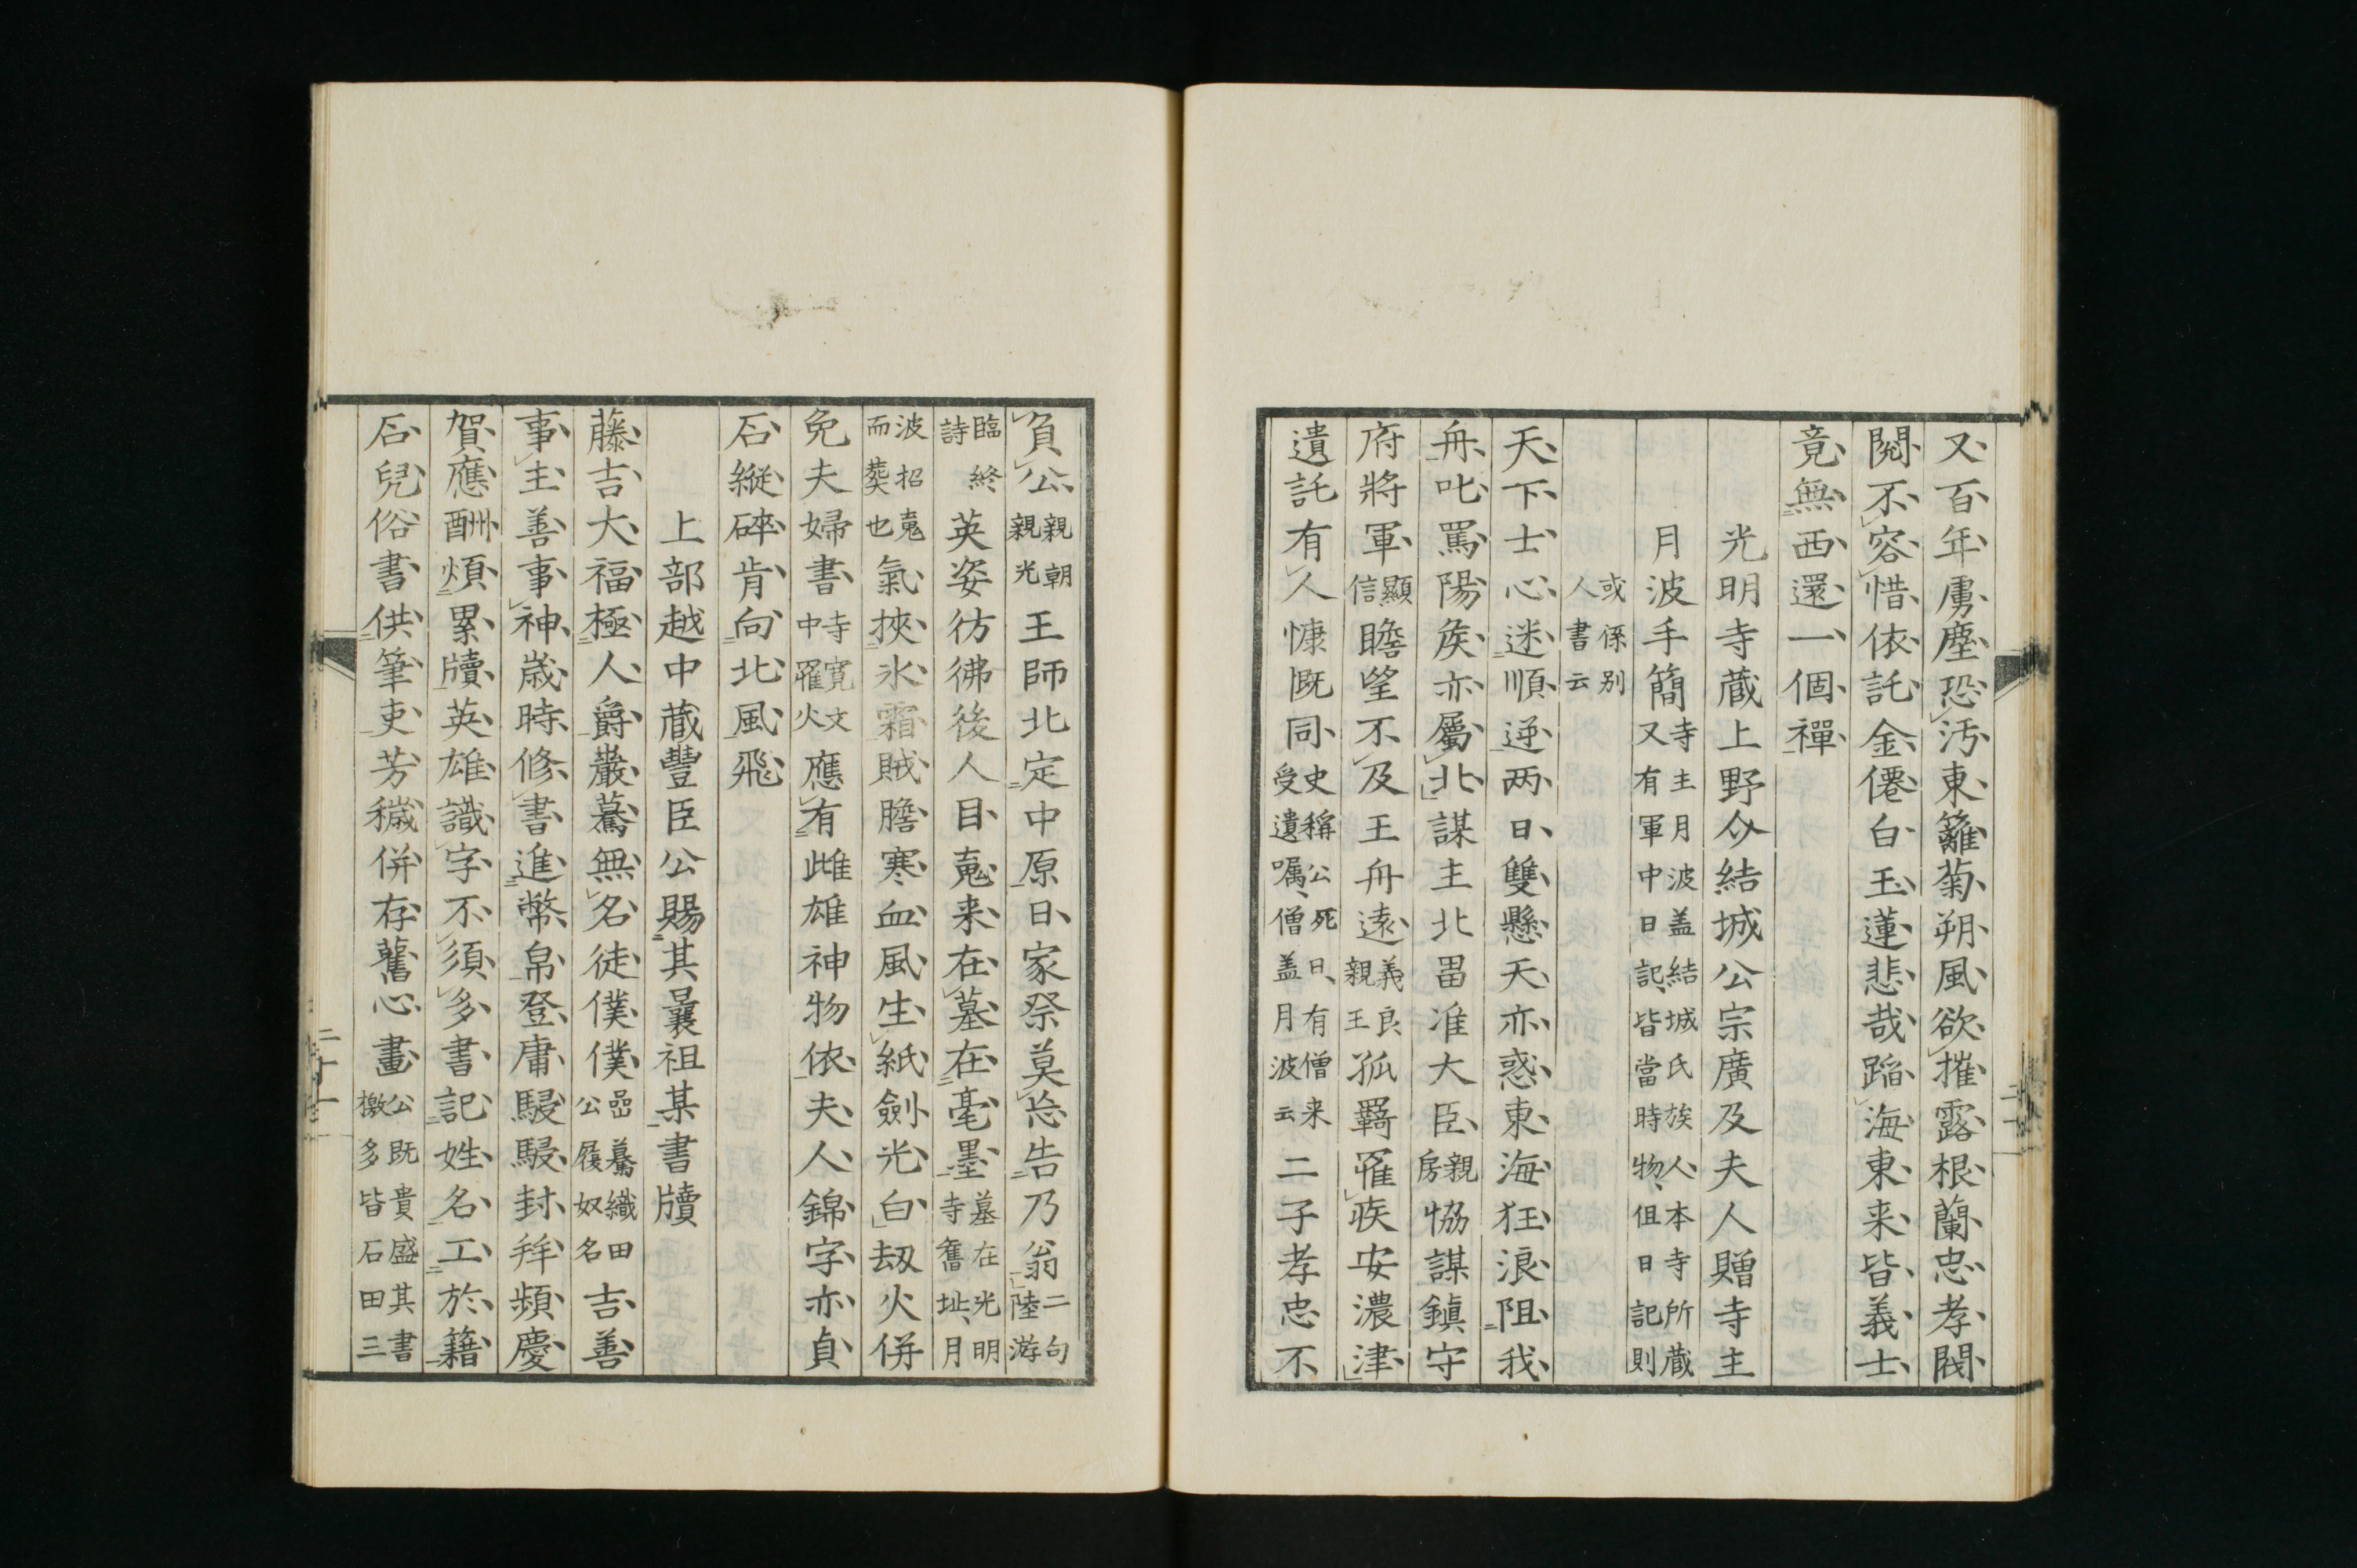 又百年虜塵恐汚東籬菊朔風欲摧露根蘭忠孝閥
閲不容惜依託金僊白玉蓮悲哉蹈海東来皆義士
竟無西還一個禪
光明寺蔵上野介結城公宗廣及夫人贈寺主
月波手簡寺主月波盖結城氏族人本寺所蔵
又有軍中日記皆當時物但日記則
或係别
人書云
天下士心迷順逆两日雙懸天亦惑東海狂浪阻我
舟叱罵陽矦亦屬北謀主北畠准大臣親房協謀鎮守
府將軍顯信瞻望不及王舟遠義良親王孤羇罹疾安濃津
遺託有人慷既同史稱公死日有僧来
受遺嘱僧盖月波云二子孝忠不
負公親朝親光王師北定中原日家祭莫忘告乃翁二句陸游
臨終詩英姿彷彿後人目䰟来在墓在毫墨墓在光明寺舊址月
波招䰟而葬也氣挾氷霜賊膽寒血風生紙劍光白刼火併
免夫婦書寺寛文中罹火應有雌雄神物依夫人錦字亦貞
石縦碎肯向北風飛
上部越中蔵豐臣公賜其曩祖某書牘
藤吉大福極人爵巌驀無名徒僕僕嵒驀織田公履奴名吉善
事主善事神歳時修書進幣帛登庸駸駸封拜頻慶
賀應酬煩累牘英雄識字不須多書記姓名工於籍
石兒俗書供筆吏芳穢併存舊心畫公既貴盛其書
檄多皆石田三
二十一